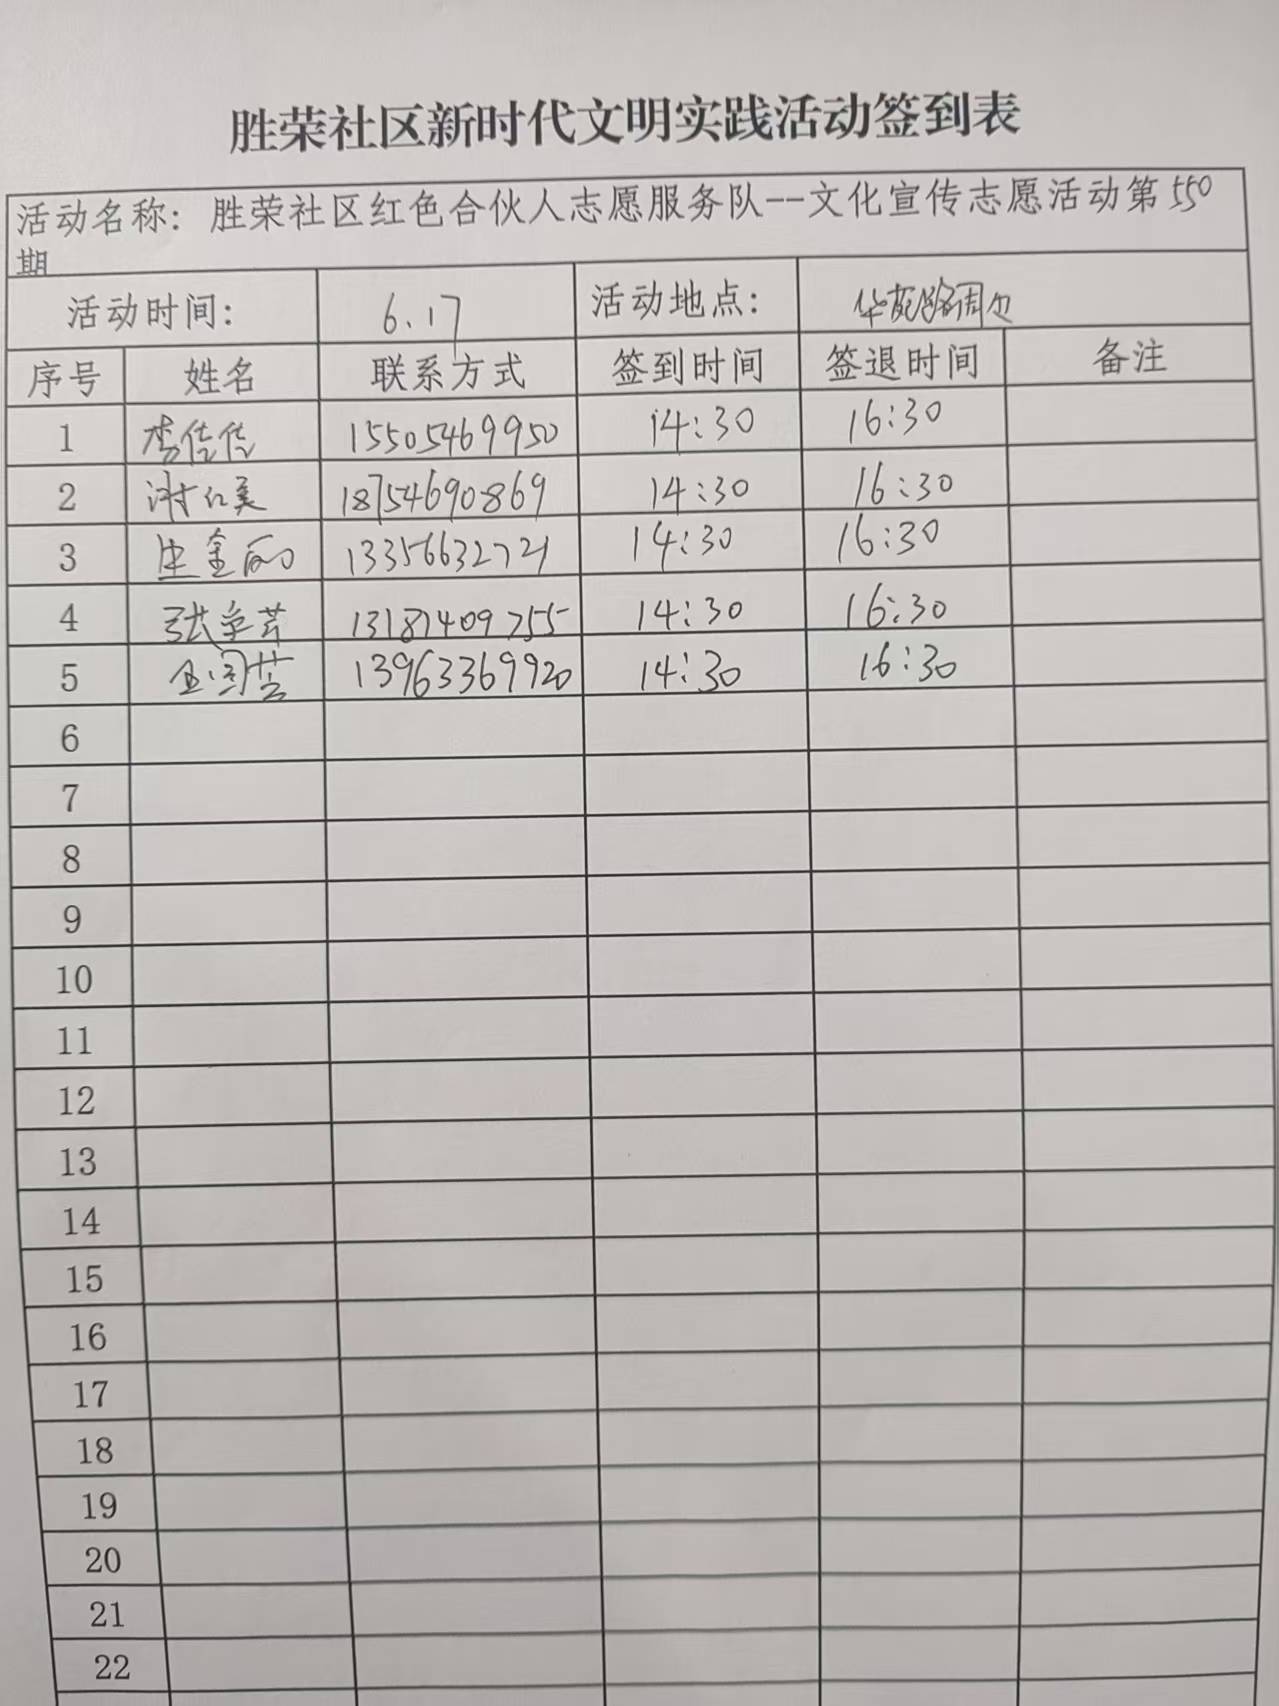 胜荣社区新时代文明实践活动签到表
活动名称: 胜荣社区红色合伙人志愿服务队--文化宣传志愿活动第550
期
活动时间: 6.17 活动地点: 华苑路周边
序号 姓名 联系方式 签到时间 签退时间 备注
1 李传传 15505469950 14:30 16:30
2 谢红美 18754690869 14:30 16:30
3 生金丽 13356632721 14:30 16:30
4 张 13181409755 14:30 16:30
5 13963369920 14:30 16:30
6
7
8
9
10
11
12
13
14
15
16
17
18
19
20
21
22